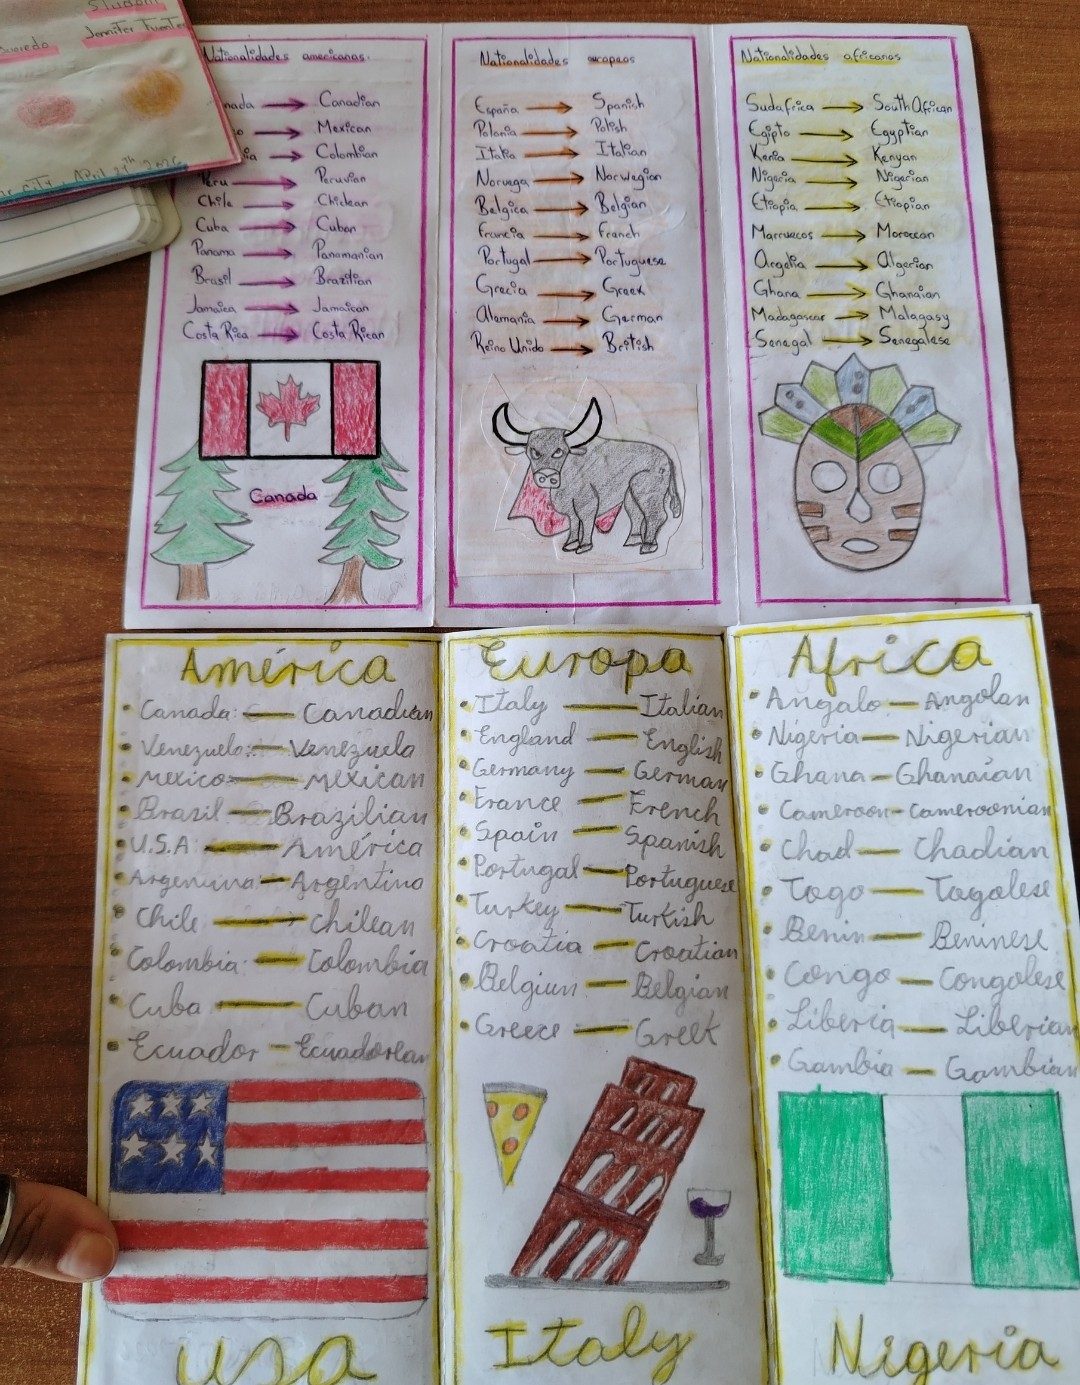 Student
Jennifer Fuentes
April 29th 2026
Nationalidades americanas.
nada → Canadian
co → Mexican
ia → Colombian
Peru → Peruvian
Chile → Chidean
Cuba → Cuban
Panama → Panamanian
Brasil → Brazilian
Jamaica → Jamaican
Costa Rica → Costa Rican
Canada
Nationalidades europeos
España → Spanish
Polonia → Polish
Italia → Italian
Noruega → Norwegian
Belgica → Belgian
Francia → French
Portugal → Portuguese
Grecia → Greek
Alemania → German
Reino Unido → British
Nationalidades africanos
Sudafrica → South African
Egipto → Egyptian
Kenia → Kenyan
Nigeria → Nigerian
Etiopia → Etiopian
Marruecos → Moroccan
Argelia → Algerian
Ghana → Ghanaian
Madagascar → Malagasy
Senegal → Senegalese
América
• Canada: — Canadian
• Venezuela: — Venezuela
• Mexico — Mexican
• Brazil — Brazilian
• U.S.A: — América
• Argentina — Argentina
• Chile → Chilean
• Colombia: — Colombia
• Cuba — Cuban
• Ecuador — Ecuadorean
USA
Europa
• Italy — Italian
• England — English
• Germany — German
• France — French
• Spain — Spanish
• Portugal — Portuguese
• Turkey — Turkish
• Croatia — Croatian
• Belgium — Belgian
• Greece — Greek
Italy
Africa
• Angalo — Angolan
• Nigeria — Nigerian
• Ghana — Ghanaian
• Cameroon — Cameroonian
• Chad — Chadian
• Togo — Togolese
• Benin — Beninese
• Congo — Congolese
• Liberia — Liberian
• Gambia — Gambian
Nigeria